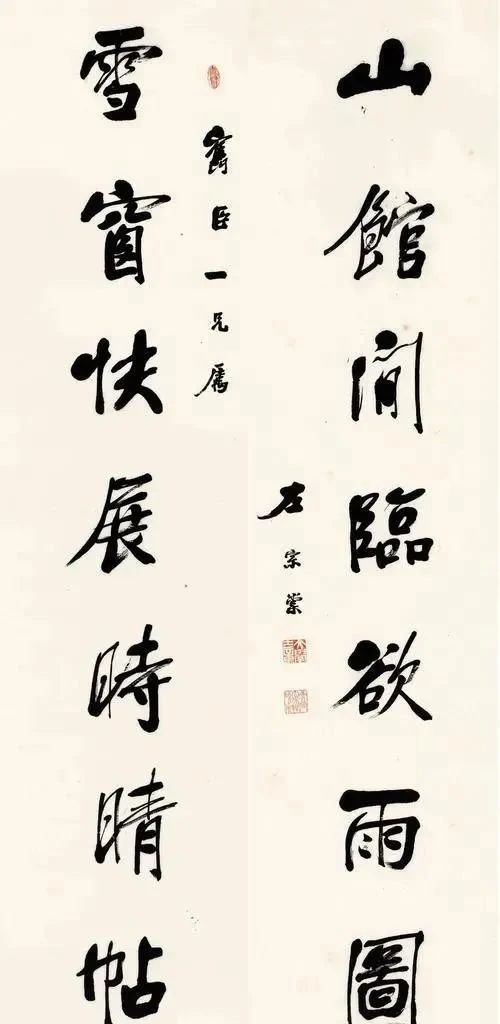 山館閒臨欲雨圖
左宗棠
寯臣一兄屬
雪窗快展時晴帖